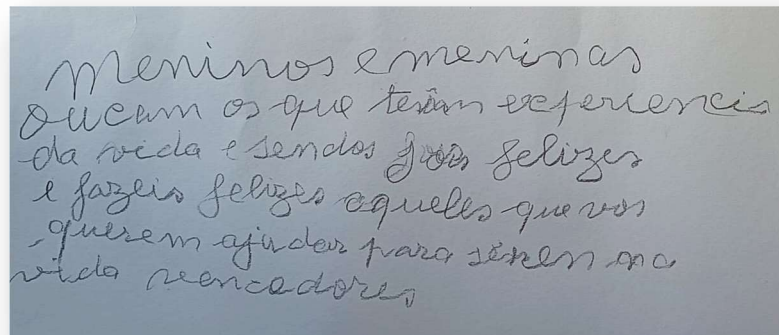 Meninos e meninas
oucam os que teem experiencia
da vida e sendos felizes
e fazeis felizes aqueles que vos
querem ajudar para serem na
vida vencedores